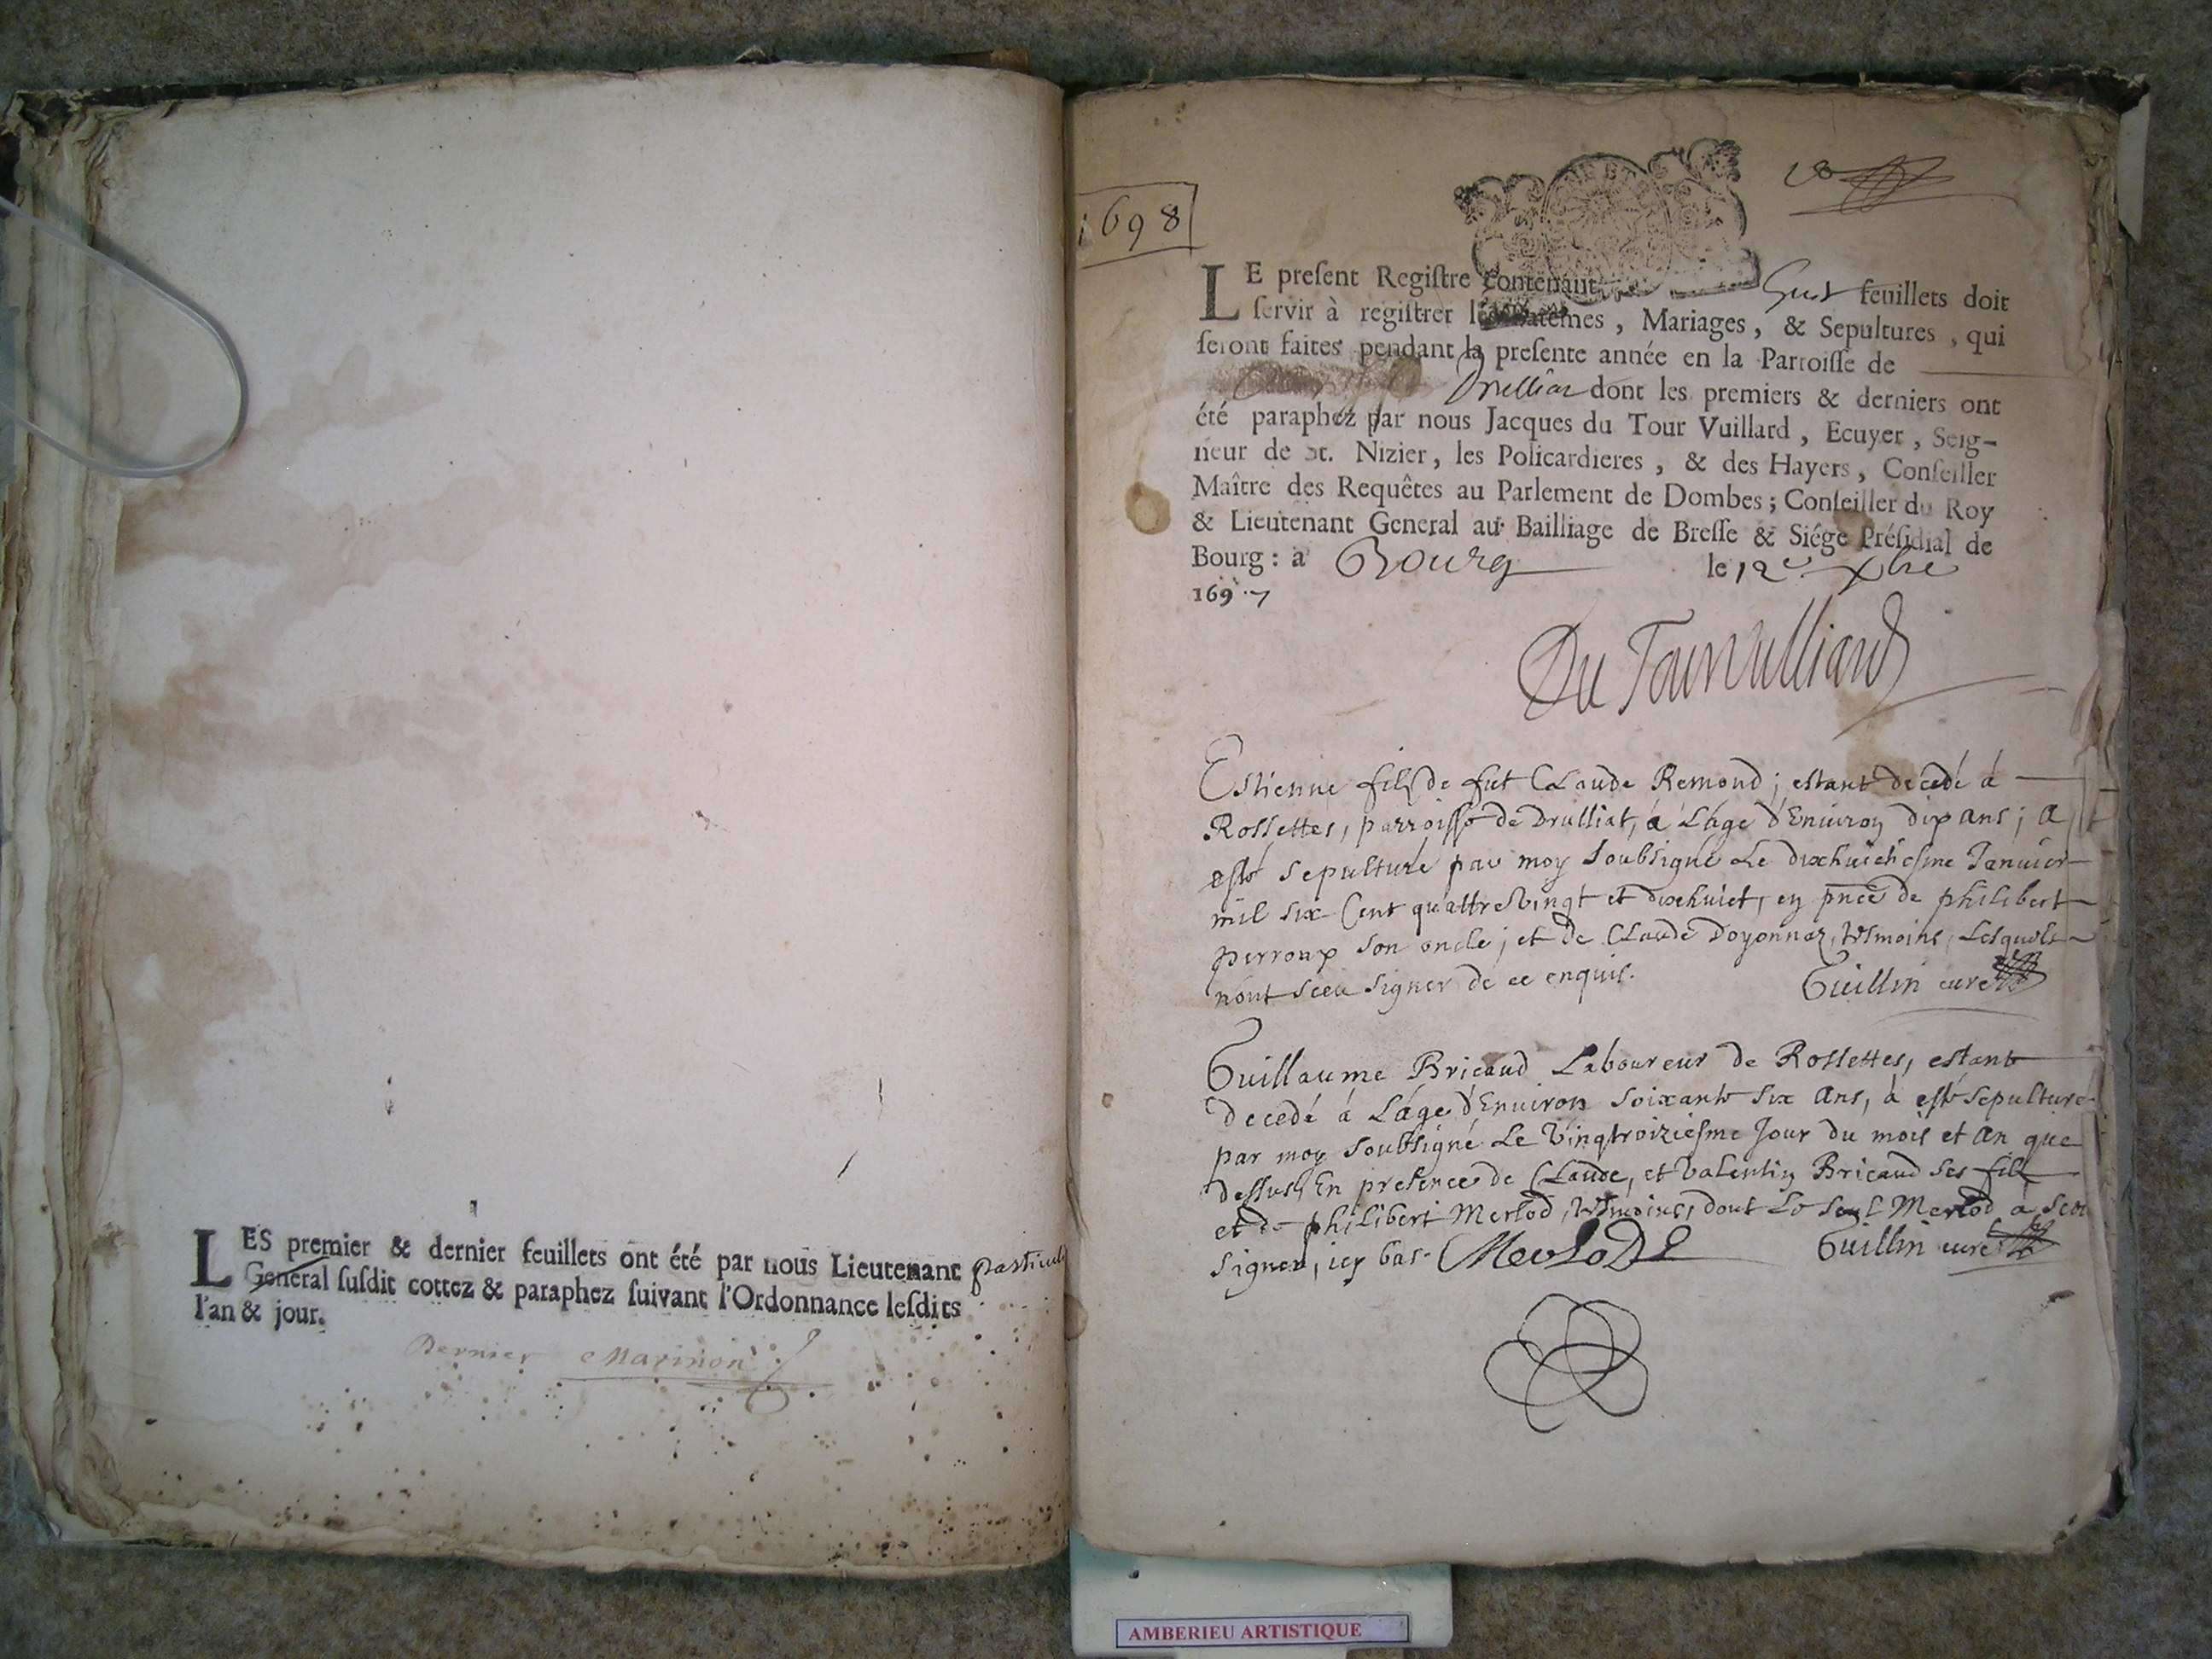 LES premier & dernier feuillets ont été par nous Lieutenant
General susdit cottez & paraphez suivant l'Ordonnance lesdits
l'an & jour.
Dernier Marinon
1698
LE present Registre contenant feuillets doit
servir à registrer les Batêmes, Mariages, & Sepultures, qui
seront faites pendant la presente année en la Parroisse de
Drulliat dont les premiers & derniers ont
été paraphez par nous Jacques du Tour Vuillard, Ecuyer, Seig-
neur de St. Nizier, les Policardieres, & des Hayers, Conseiller
Maître des Requêtes au Parlement de Dombes; Conseiller du Roy
& Lieutenant General au Bailliage de Bresse & Siége Présidial de
Bourg: a Bourg le 12e xbre
1697
Du Tourvulliard
Estienne fils de fut Claude Remond; estant decedé à
Rossettes, parroisse de Drulliat, à L'âge d'Enuiron dix ans; a
esté sepulturé par moy soubsigné Le dixhuictiesme Januier
mil six Cent quattre Vingt et dixhuict, en pnce de philibert
perroux son oncle; et de Claude Doyonnaz, tesmoins, Lesquels
n'ont sceu signer de ce enquis.
Guillin curé
Guillaume Bricaud Laboureur de Rossettes, estant
decedé à L'âge d'Enuiron soixante six ans, à esté sepulturé
par moy soubsigné Le Vingtroiziesme Jour du mois et an que
dessus, En presence de Claude, et Valentin Bricaud ses fils
et de philibert Merlod, tesmoins, dont Le seul Merlod a sceu
signer, icy bas. Merlode Guillin curé
AMBERIEU ARTISTIQUE